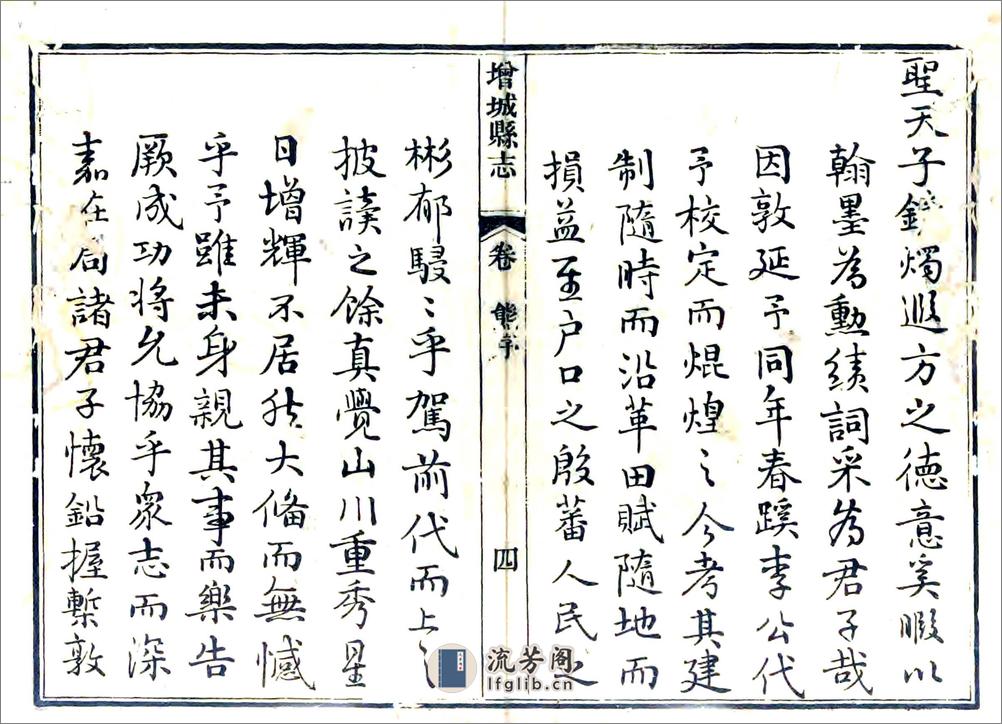 聖天子錯燭遐方之德意奚暇以
翰墨為勳績詞采為君子哉
因敦延予同年春蹊李公代
予校定而焜煌之今考其建
制隨時而沿革田賦隨地而
損益至户口之殷蕃人民之
增城縣志
卷
熊序
四
彬郁駸〻乎駕前代而上之
披讀之餘真覺山川重秀星
日增輝不居然大備而無憾
乎予雖未身親其事而樂告
厥成功將允協乎眾志而深
嘉在同諸君子懷鉛握槧敦
流芳阁
lfglib.cn